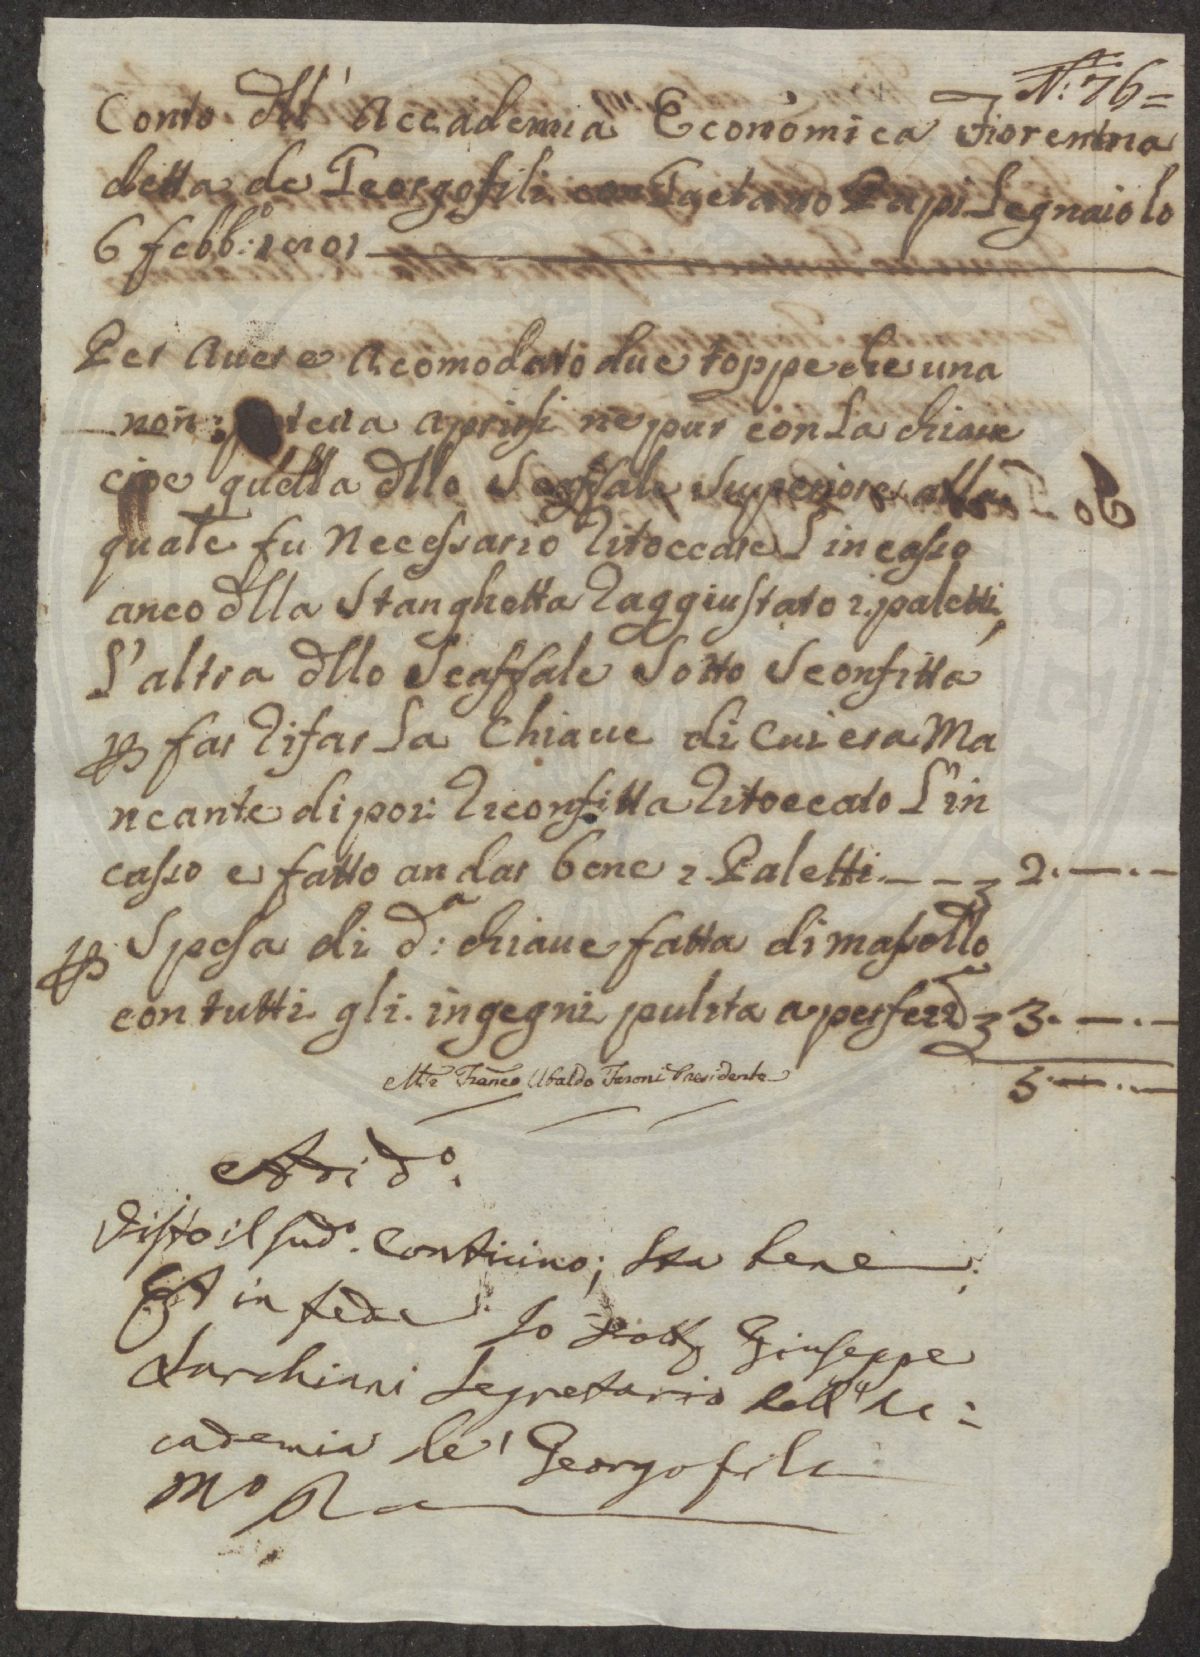 N: 76=
Conto dll' Accademia Economica Fiorentina
detta de Georgofili con Gaetano Papi Legnaiolo
6 Febb:o 1801
Per Avere Acomodato due toppe che una
non poteva aprirsi ne pur con La chiave
cioe quella dllo Scaffale Superiore alla
quale fu Necessario Ritoccare L'incasso
anco dlla Stanghetta Raggiustato i paletti,
L'altra dllo Scaffale Sotto Sconfitta
p far Rifar La Chiave di Cui era Ma
ncante di poi Riconfitta Ritoccato L'in
casso e fatto andar bene i Paletti 2.—.—
p Spesa di d:a chiave fatta di masello
con tutti gli ingegni pulita a perfez 3.—.—
5.—.—
Franco Ubaldo Feroni Presidente
Adi do.
Visto il sudo. Conticino; sta bene;
Et in fede Io Dott Giuseppe
Sarchiani Segretario dell' Ac=
cademia de' Georgofili
Mo Pa